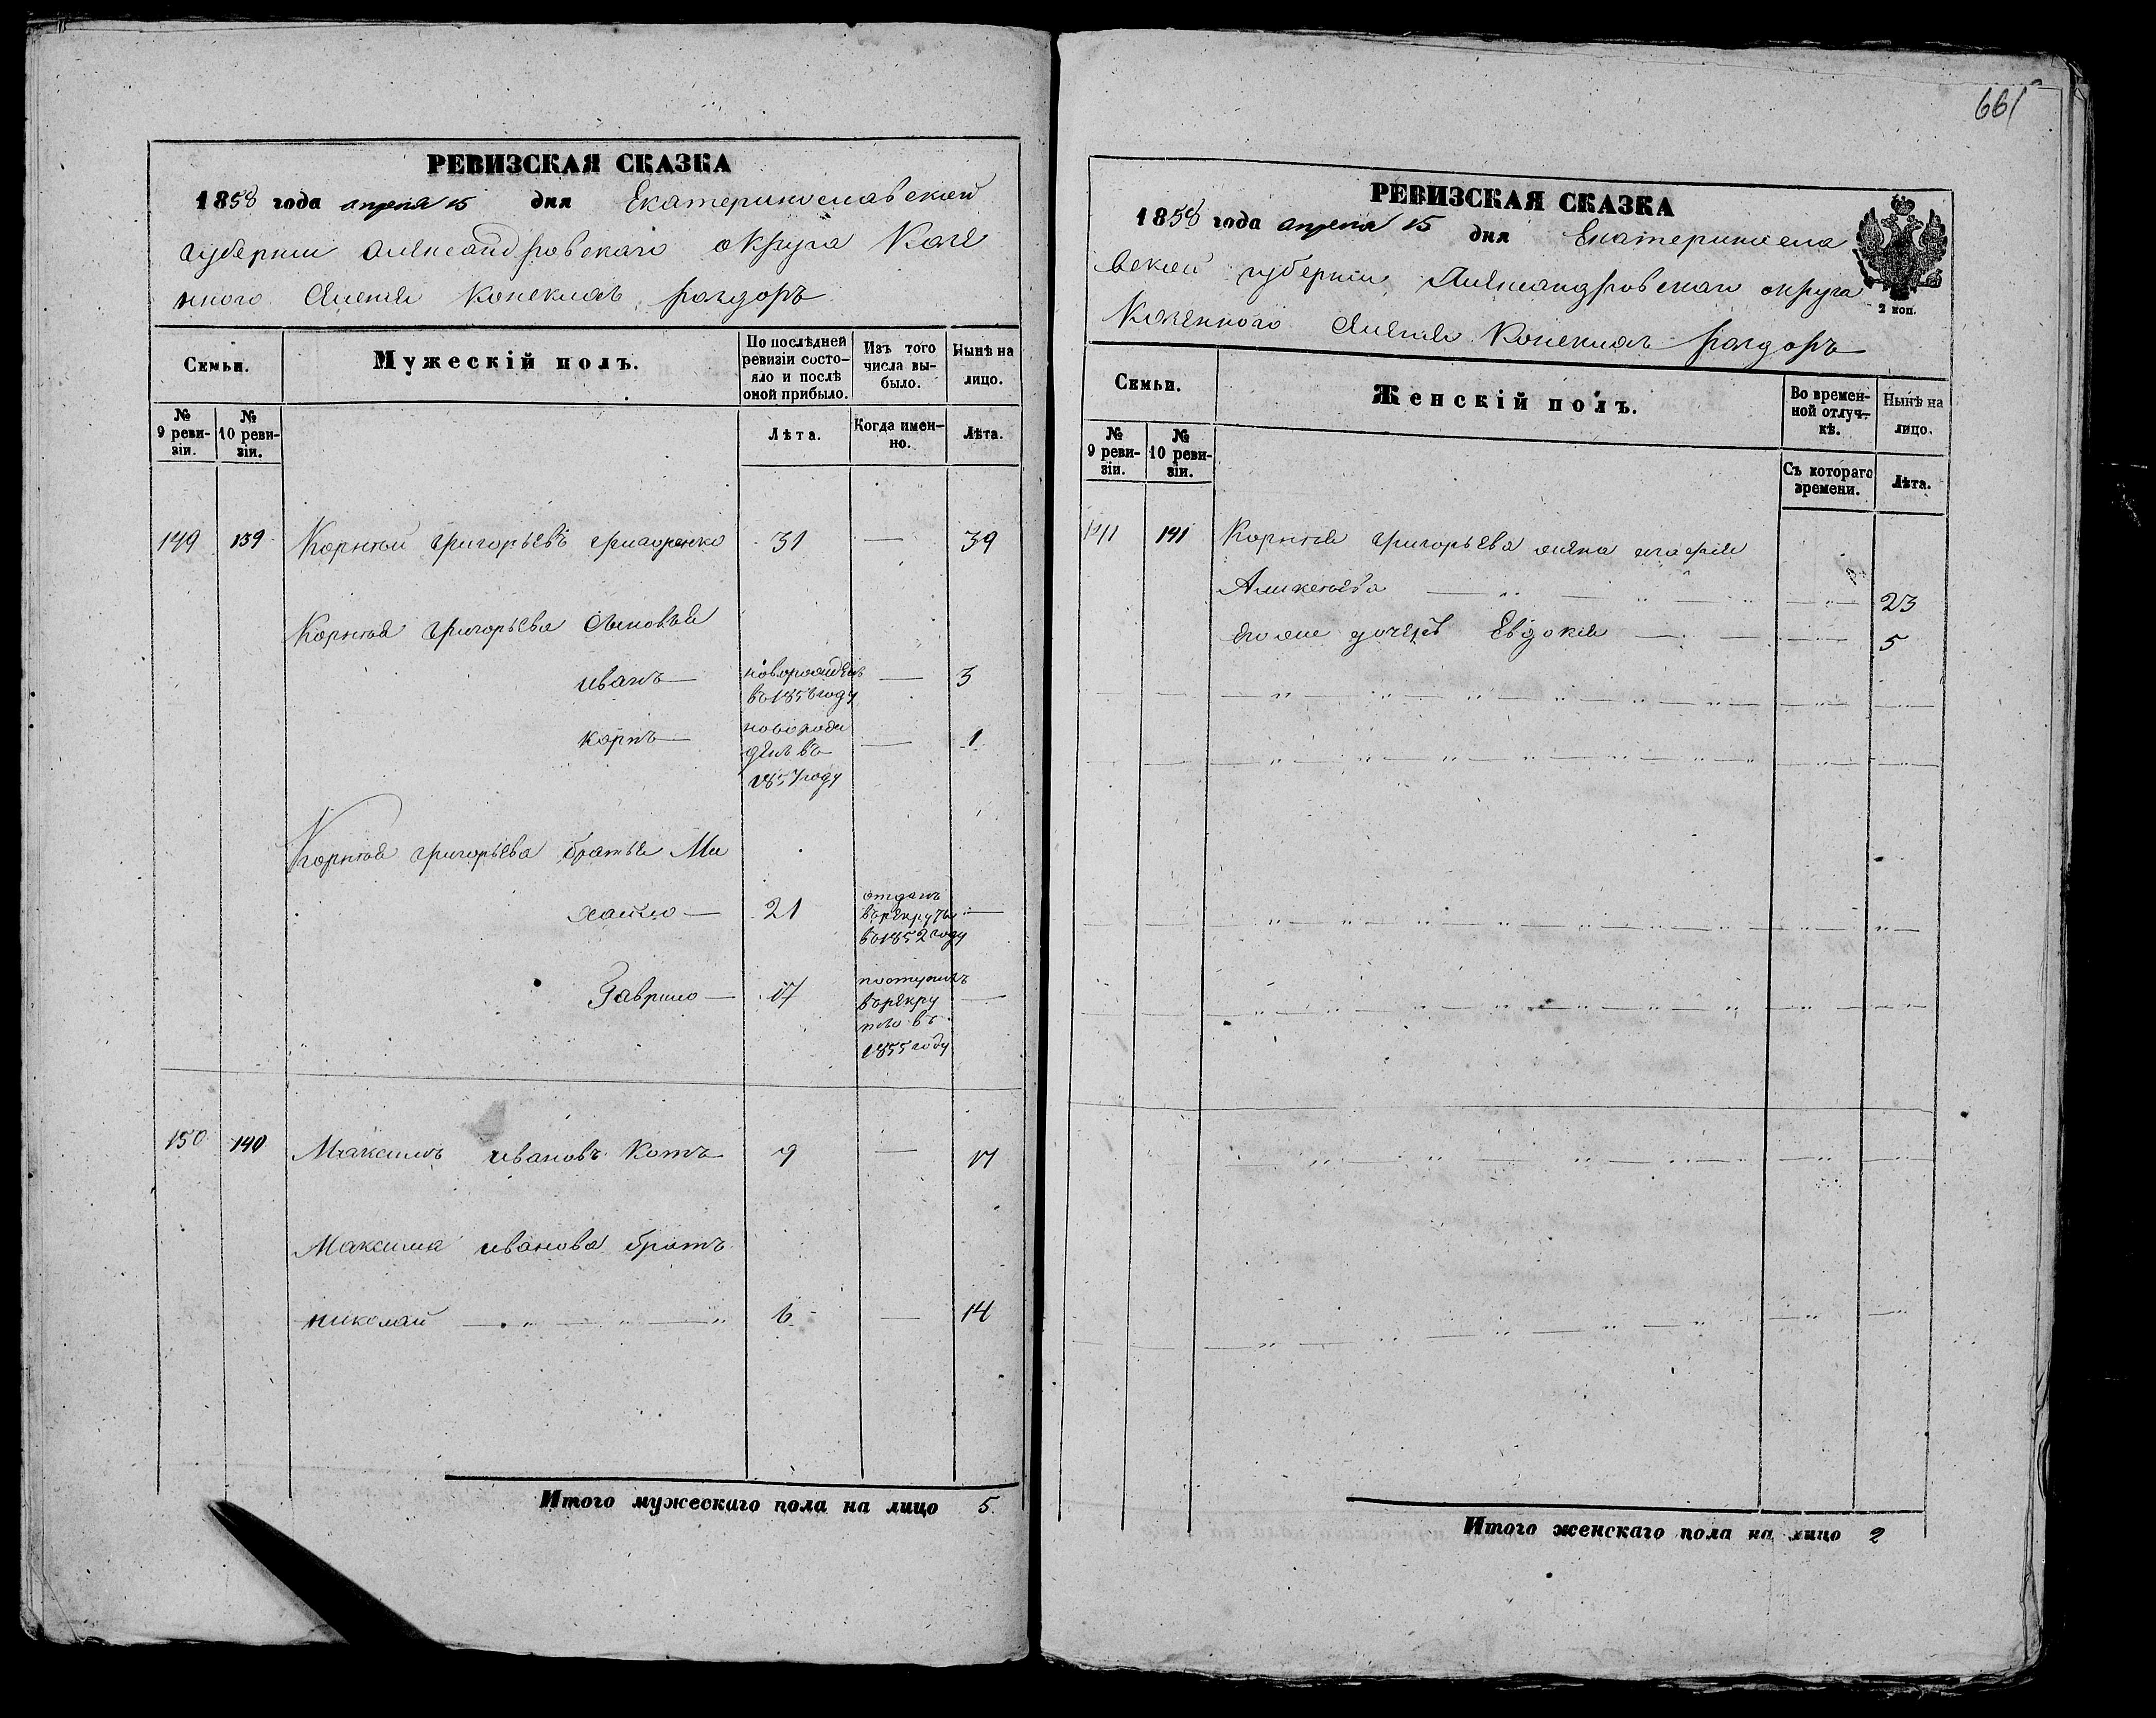 РЕВИЗСКАЯ СКАЗКА
1858 года апреля 15 дня Екатеринославской
губернии Александровскаго округа Казе
нного Конскихъ раздоръ
Семьи.
Мужескій полъ.
По послѣдней ревизіи состо-
яло и послѣ оной прибыло.
Изъ того числа вы-
было.
Нынѣ на лицо.
№ 9 реви-
зіи.
№ 10 реви-
зіи.
Лѣта.
Когда имен-
но.
Лѣта.
149 139 Корней григорьевъ григоренко 31 — 39
Корнея григорьева сыновья
иванъ — новорожденъ — 3
въ 1856 году
карпъ — новорож — 1
денъ въ
1857 году
Корнея григорьева братья Ми
хайло — 21 отданъ —
въ рекруты
въ 1852 году
Гаврило — 17 поступилъ —
въ рекру
ты въ
1855 году
150 140 Максимъ ивановъ Котъ 9 — 17
Максима иванова братъ
николай 6 — 14
Итого мужескаго пола на лицо 5
661
РЕВИЗСКАЯ СКАЗКА
1858 года апреля 15 дня Екатериносла
вской губернии Александровскаго округа
Казенного Конскихъ раздоръ
2 коп.
Семьи.
Женскій полъ.
Во времен-
ной отлуч-
кѣ.
Нынѣ на лицо.
№ 9 реви-
зіи.
№ 10 реви-
зіи.
Съ котораго времени.
Лѣта.
141 141 Корнея григорьева жена
23
его же дочерь Евдокия 5
Итого женскаго пола на лицо 2